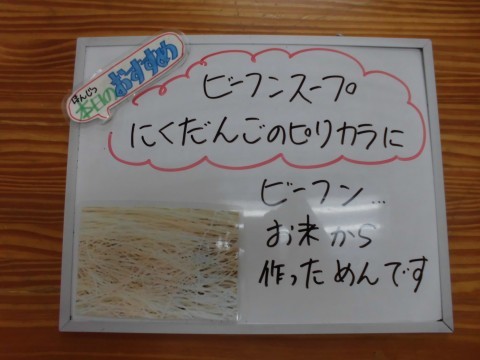 ほんじつ
本日のおすすめ
ビーフンスープ
にくだんごのピリカラに
ビーフン…
お米から
作っためんです